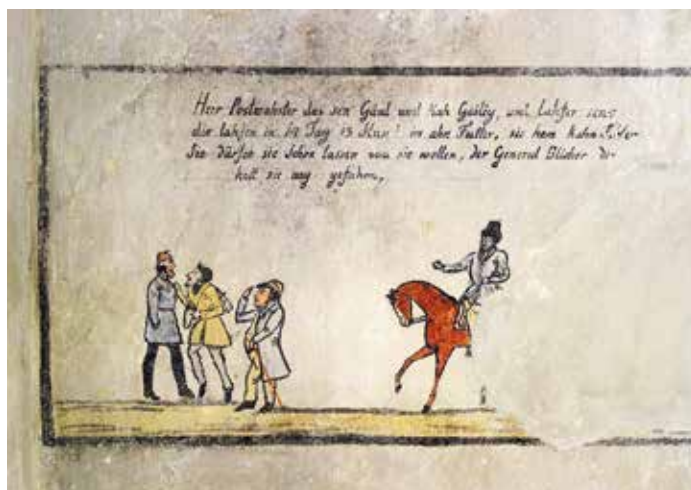 Herr Postmahster das sen Gäul und Kah Gasley, und Lahfer sens
die lahfen in Tag 13 in ahn Futter, sie hem kahn
Sie dürfet sie sehen lassen wou sie wollen, der General Blücher
hatt sie aug gefahren,